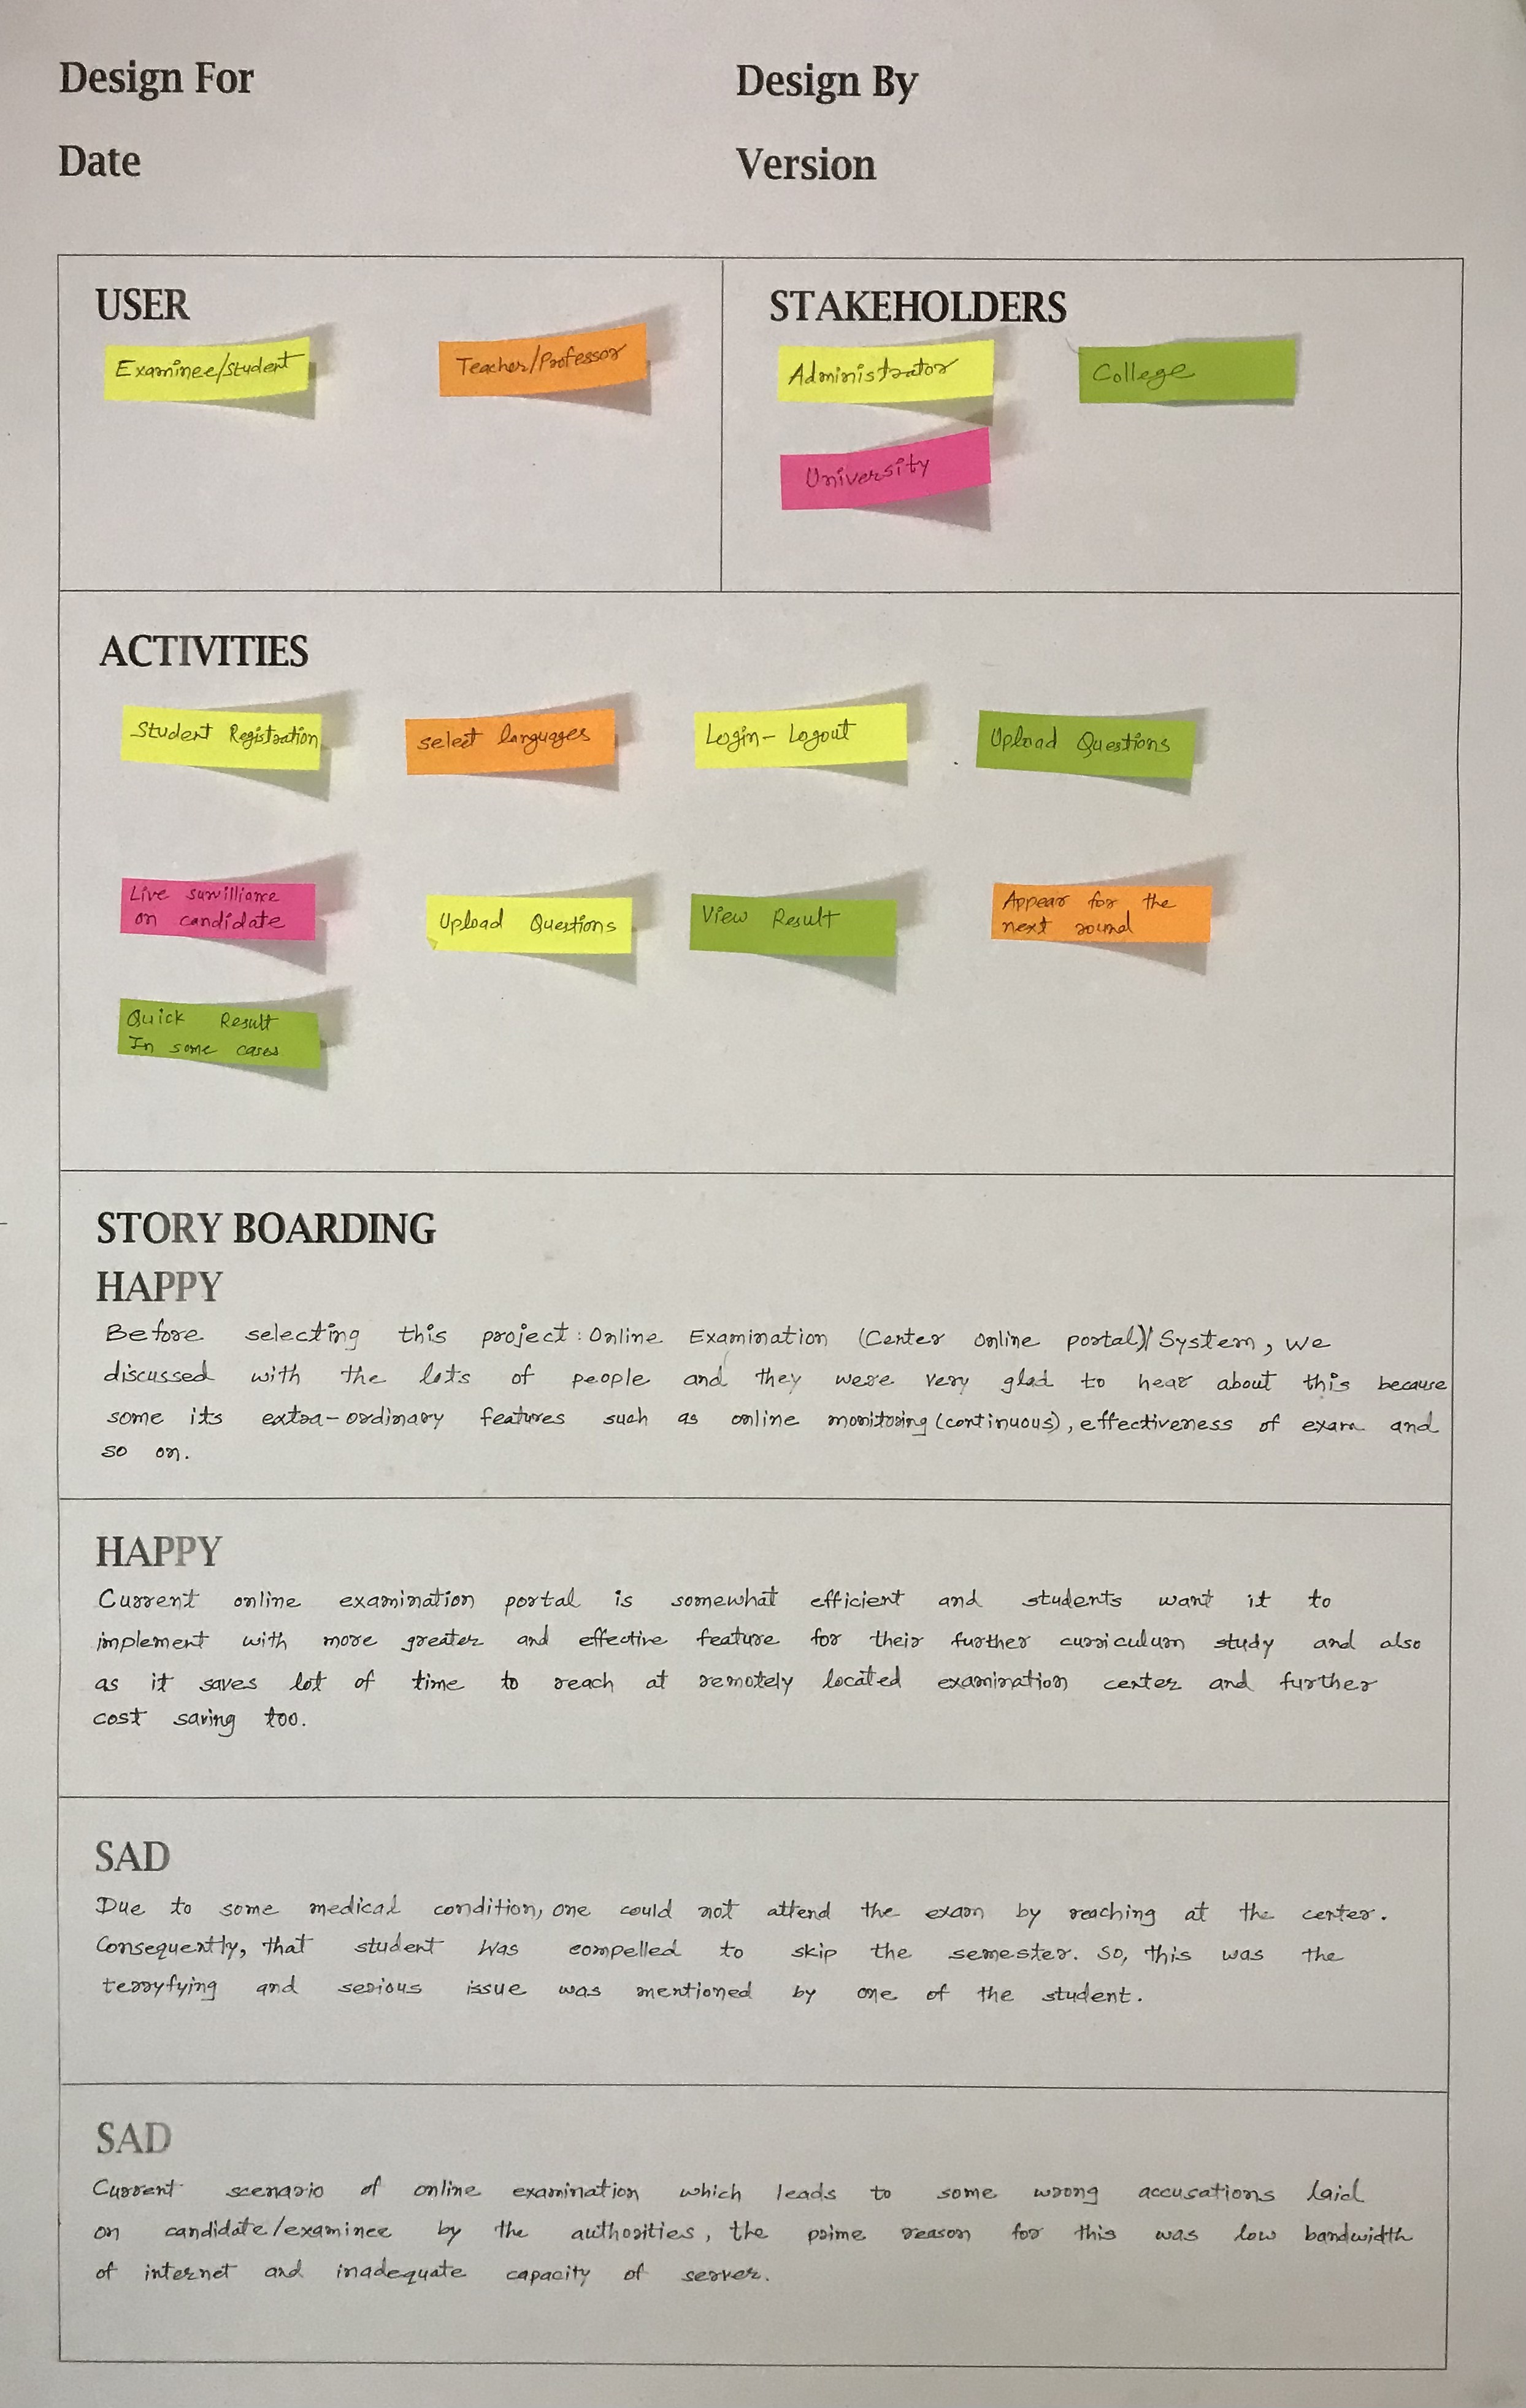 Design For
Design By
Date
Version
USER
Examinee/Student
Teacher/Professor
STAKEHOLDERS
Administrator
College
University
ACTIVITIES
Student Registration
select languages
Login- Logout
Upload Questions
Live survilliance
on candidate
Upload Questions
View Result
Appear for the
next round
Quick Result
In some cases
STORY BOARDING
HAPPY
Before selecting this project: Online Examination (Center online portal)/System, we
discussed with the lots of people and they were very glad to hear about this because
some its extra-ordinary features such as online monitoring (continuous), effectiveness of exam and
so on.
HAPPY
Current online examination portal is somewhat efficient and students want it to
implement with more greater and effective feature for their further curriculum study and also
as it saves lot of time to reach at remotely located examination center and further
cost saving too.
SAD
Due to some medical condition, one could not attend the exam by reaching at the center.
Consequently, that student was compelled to skip the semester. So, this was the
terryfying and serious issue was mentioned by one of the student.
SAD
Current scenario of online examination which leads to some wrong accusations laid
on candidate/examinee by the authorities, the prime reason for this was low bandwidth
of internet and inadequate capacity of server.